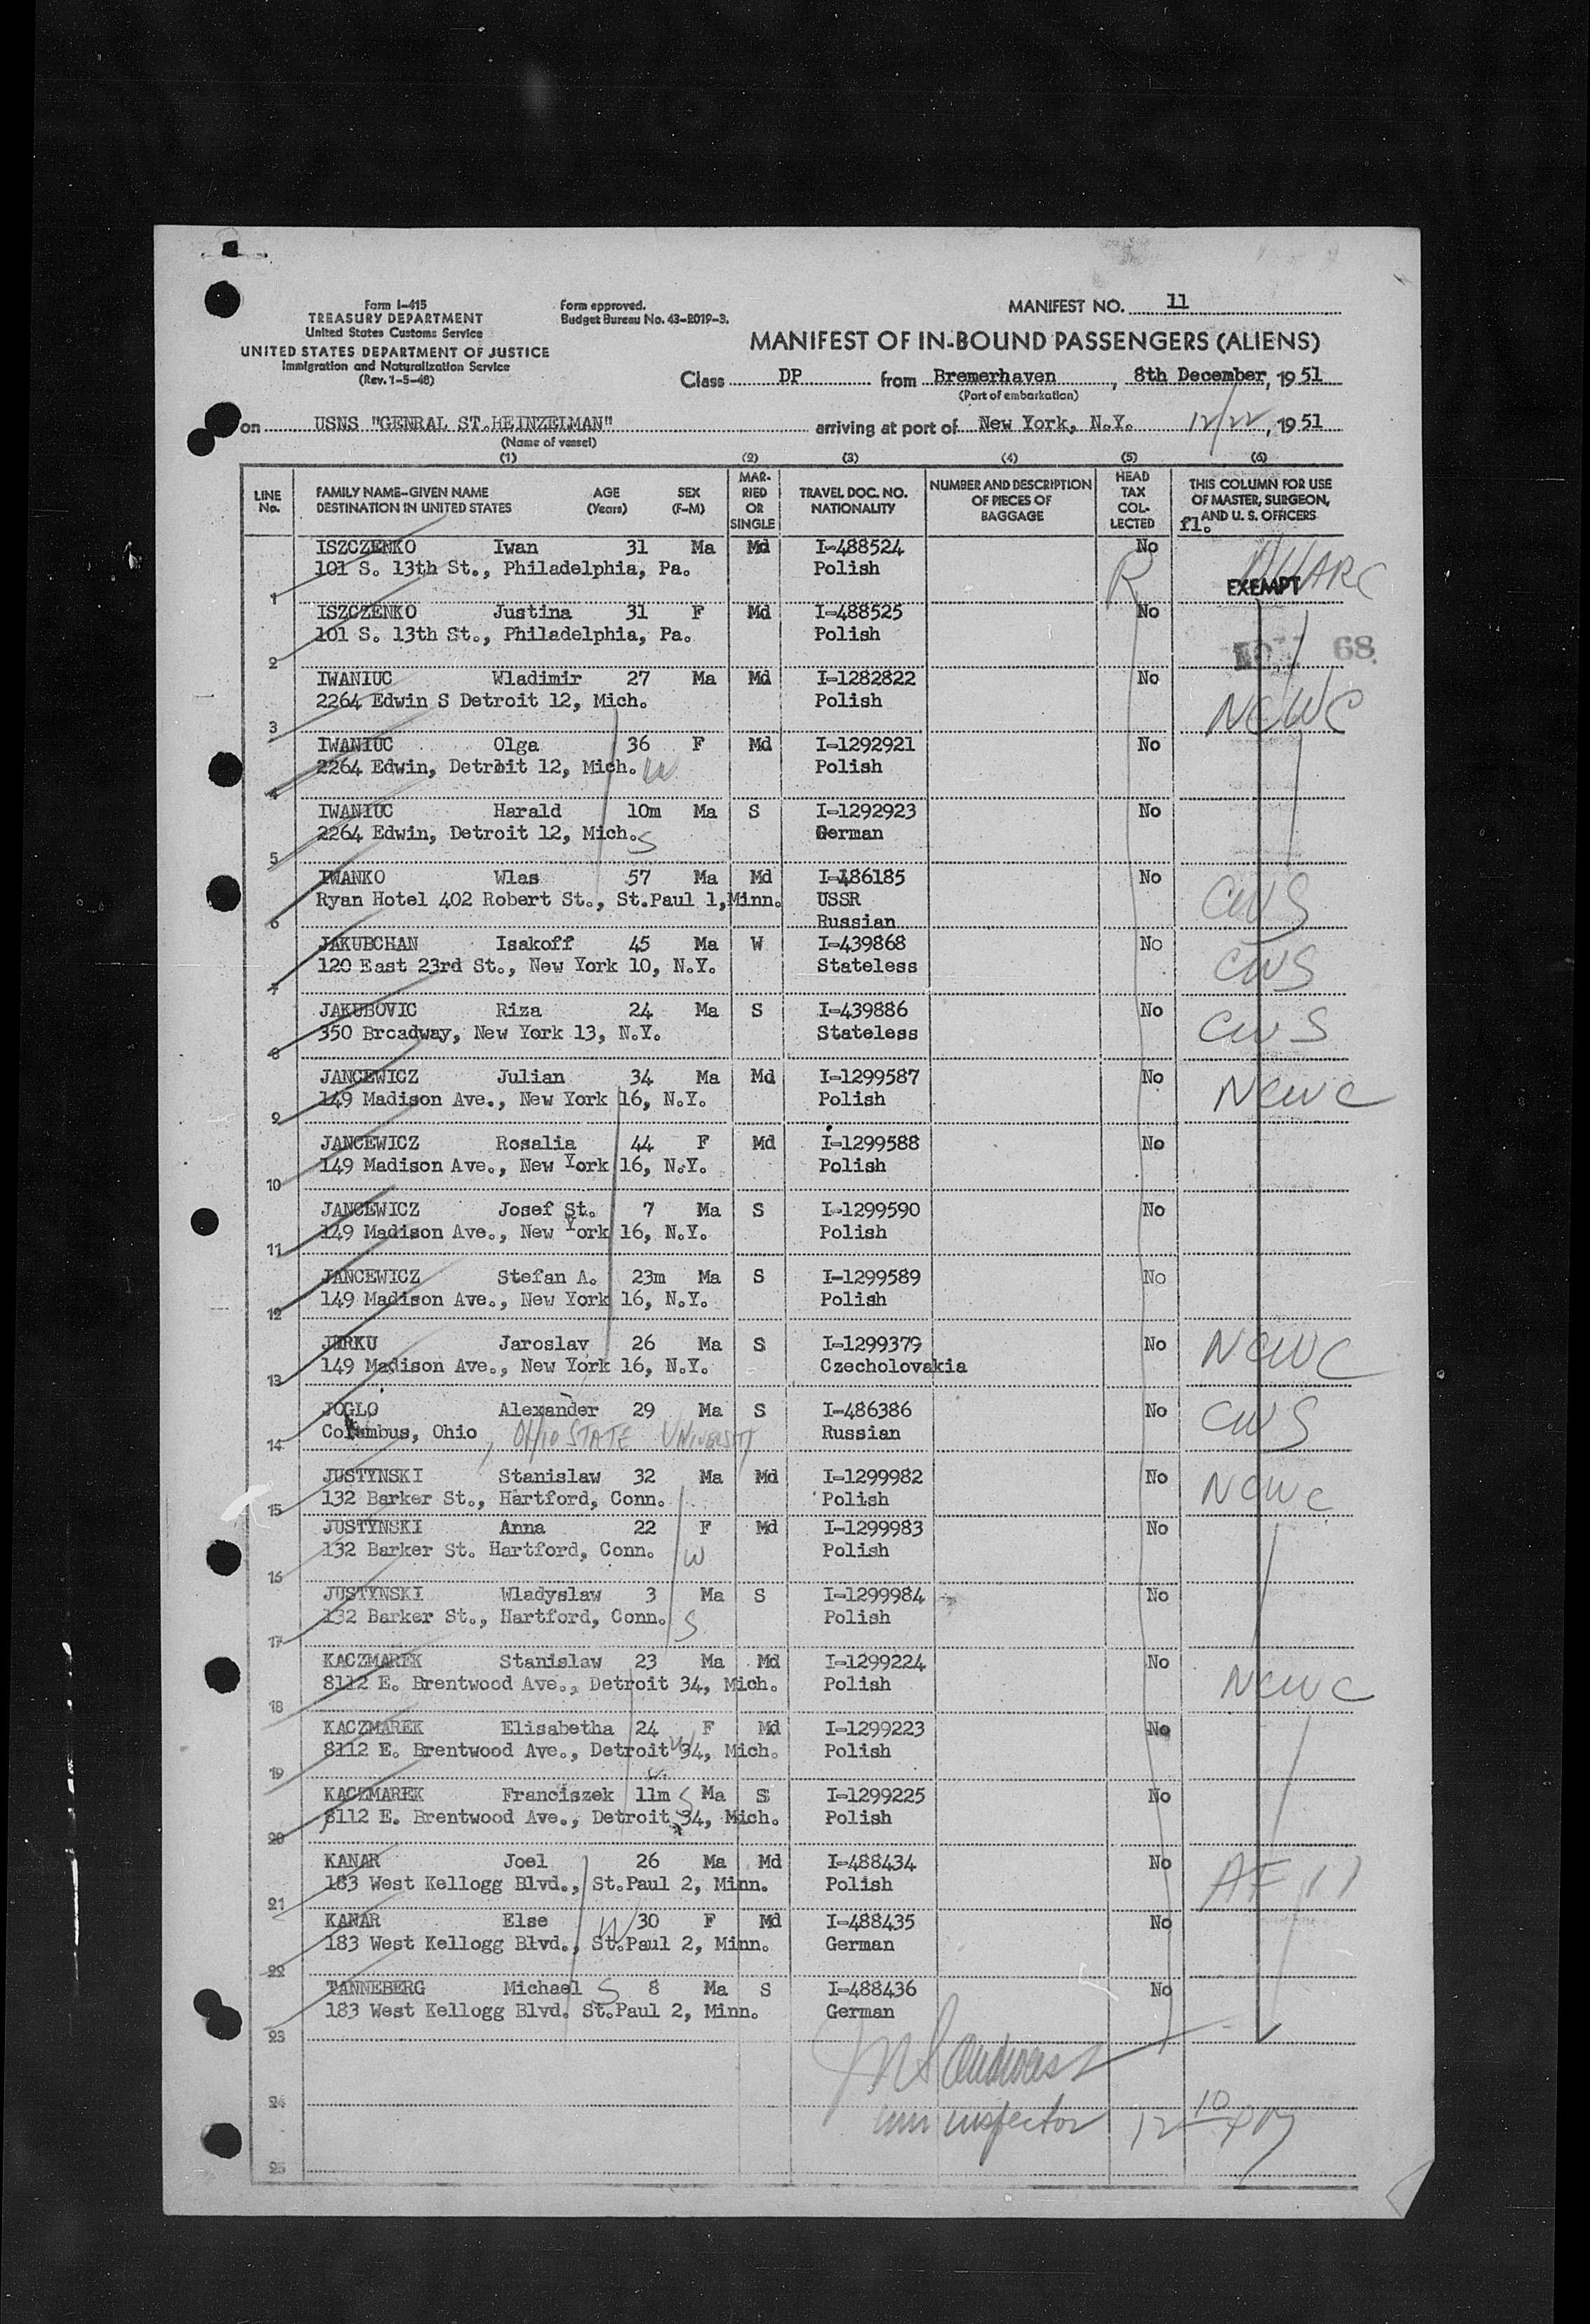 Form I-415
TREASURY DEPARTMENT
United States Customs Service
UNITED STATES DEPARTMENT OF JUSTICE
Immigration and Naturalization Service
(Rev. 1-5-48)
Form approved.
Budget Bureau No. 43-R019-3.
MANIFEST NO. 11
MANIFEST OF IN-BOUND PASSENGERS (ALIENS)
Class DP from Bremerhaven, 8th December, 1951
(Port of embarkation)
on USNS "GENRAL ST.HEINZELMAN" arriving at port of New York, N.Y. 12/22, 1951
(Name of vessel)
(1) (2) (3) (4) (5) (6)
LINE No. FAMILY NAME-GIVEN NAME DESTINATION IN UNITED STATES AGE (Years) SEX (F-M) MARRIED OR SINGLE TRAVEL DOC. NO. NATIONALITY NUMBER AND DESCRIPTION OF PIECES OF BAGGAGE HEAD TAX COLLECTED THIS COLUMN FOR USE OF MASTER, SURGEON, AND U. S. OFFICERS
fl.
ISZCZENKO Iwan 31 Ma Md I-488524 No
101 S. 13th St., Philadelphia, Pa. Polish R EXEMPT
1
ISZCZENKO Justina 31 F Md I-488525 No
101 S. 13th St., Philadelphia, Pa. Polish 68
2
IWANIUC Wladimir 27 Ma Md I-1282822 No
2264 Edwin S Detroit 12, Mich. Polish NCWC
3
IWANIUC Olga 36 F Md I-1292921 No
2264 Edwin, Detroit 12, Mich. W Polish
4
IWANIUC Harald 10m Ma S I-1292923 No
2264 Edwin, Detroit 12, Mich. S German
5
IWANKO Wlas 57 Ma Md I-486185 No
Ryan Hotel 402 Robert St., St.Paul 1,Minn. USSR CWS
6 Russian
JAKUBCHAN Isakoff 45 Ma W I-439868 No
120 East 23rd St., New York 10, N.Y. Stateless CWS
7
JAKUBOVIC Riza 24 Ma S I-439886 No
350 Broadway, New York 13, N.Y. Stateless CWS
8
JANCEWICZ Julian 34 Ma Md I-1299587 No
149 Madison Ave., New York 16, N.Y. Polish NCWC
9
JANCEWICZ Rosalia 44 F Md I-1299588 No
149 Madison Ave., New York 16, N.Y. Polish
10
JANCEWICZ Josef St. 7 Ma S I-1299590 No
149 Madison Ave., New York 16, N.Y. Polish
11
JANCEWICZ Stefan A. 23m Ma S I-1299589 No
149 Madison Ave., New York 16, N.Y. Polish
12
JURKU Jaroslav 26 Ma S I-1299379 No NCWC
149 Madison Ave., New York 16, N.Y. Czecholovakia
13
JOGLO Alexander 29 Ma S I-486386 No CWS
Columbus, Ohio, OHIO STATE UNIVERSITY Russian
14
JUSTYNSKI Stanislaw 32 Ma Md I-1299982 No NCWC
132 Barker St., Hartford, Conn. Polish
15
JUSTYNSKI Anna 22 F Md I-1299983 No
132 Barker St. Hartford, Conn. W Polish
16
JUSTYNSKI Wladyslaw 3 Ma S I-1299984 No
132 Barker St., Hartford, Conn. S Polish
17
KACZMAREK Stanislaw 23 Ma Md I-1299224 No
8112 E. Brentwood Ave., Detroit 34, Mich. Polish NCWC
18
KACZMAREK Elisabetha 24 F Md I-1299223 No
8112 E. Brentwood Ave., Detroit 34, Mich. W Polish
19
KACZMAREK Franciszek 11m S Ma S I-1299225 No
8112 E. Brentwood Ave., Detroit 34, Mich. Polish
20
KANAR Joel 26 Ma Md I-488434 No
183 West Kellogg Blvd., St.Paul 2, Minn. Polish
21
KANAR Else W 30 F Md I-488435 No
183 West Kellogg Blvd., St.Paul 2, Minn. German
22
TANNEBERG Michael S 8 Ma S I-488436 No
183 West Kellogg Blvd. St.Paul 2, Minn. German
23
24
imm inspector 12 10 PM
25